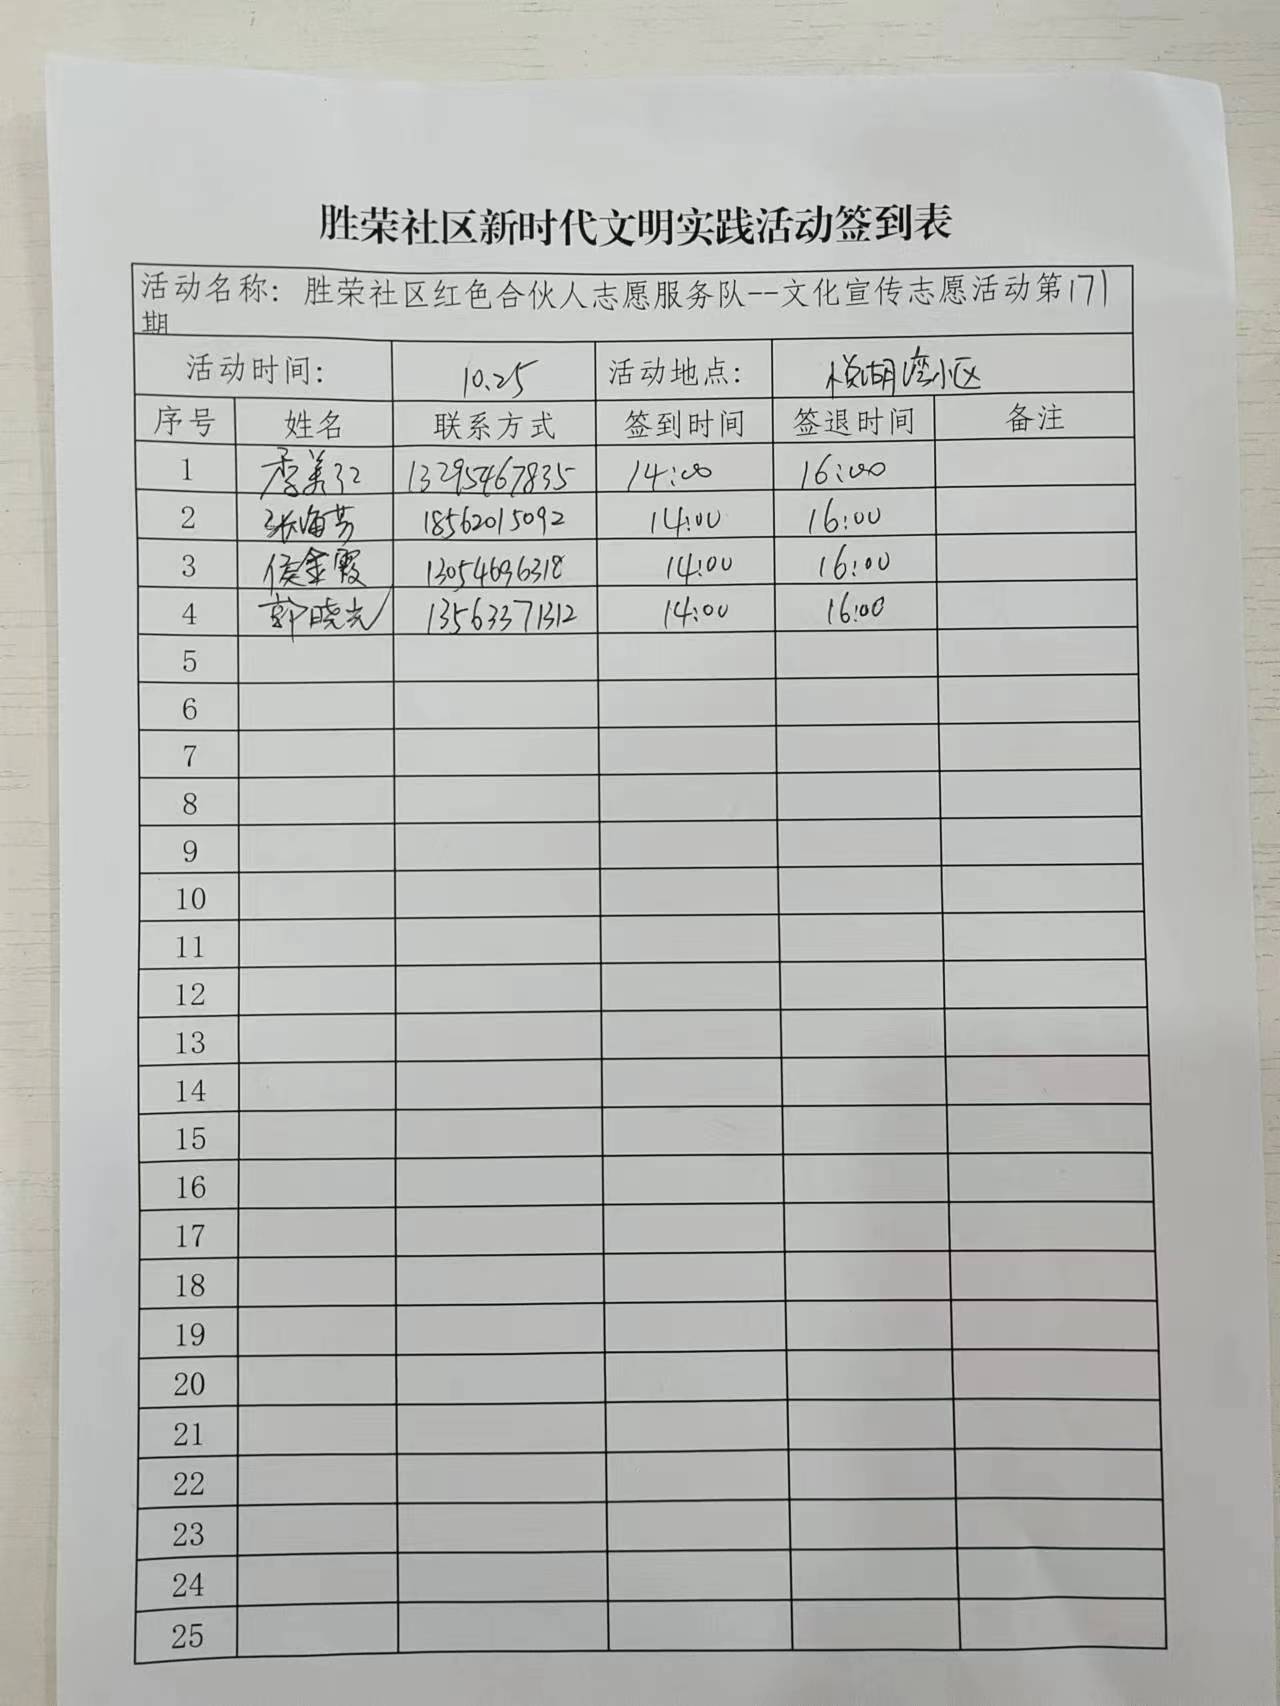 胜荣社区新时代文明实践活动签到表
活动名称：胜荣社区红色合伙人志愿服务队--文化宣传志愿活动第171
期
活动时间： 10.25 活动地点： 悦湖湾小区
序号 姓名 联系方式 签到时间 签退时间 备注
1 李美江 13295467835 14:00 16:00
2 张海芳 18562015092 14:00 16:00
3 侯金霞 13054696318 14:00 16:00
4 郭晓光 13563371312 14:00 16:00
5
6
7
8
9
10
11
12
13
14
15
16
17
18
19
20
21
22
23
24
25